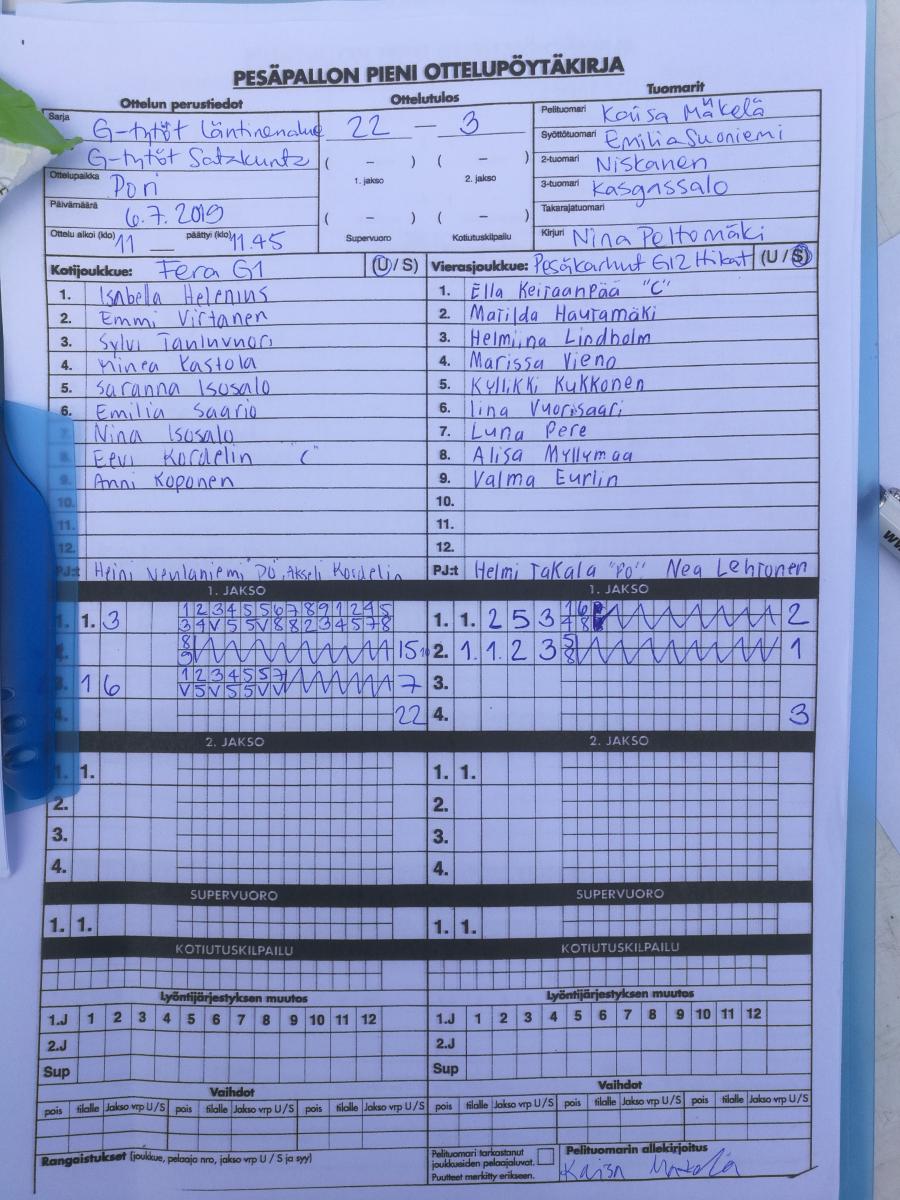 PESÄPALLON PIENI OTTELUPÖYTÄKIRJA
Ottelun perustiedot
Ottelutulos
Tuomarit
Sarja G-tytöt Läntinenalue
G-tytöt Satakunta
22 – 3
( – ) ( – )
1. jakso 2. jakso
( – ) ( – )
Supervuoro Kotiutuskilpailu
Ottelupaikka Pori
Päivämäärä 6.7.2019
Ottelu alkoi (klo) 11 päättyi (klo) 11.45
Pelituomari Kaisa Mäkelä
Syöttötuomari Emilia Suoniemi
2-tuomari Niskanen
3-tuomari Kasgassalo
Takarajatuomari
Kirjuri Nina Peltomäki
Kotijoukkue: Fera G1 (U/S)
1. Isabella Helenius
2. Emmi Virtanen
3. Sylvi
4. Minea Kastola
5. Saranna Isosalo
6. Emilia Saario
7. Nina Isosalo
8. Eevi Kordelin C"
9. Anni Koponen
10.
11.
12.
PJ:t Heini "PO", Akseli Kordelin
Vierasjoukkue: Pesäkarhut G12 Hikat (U/S)
1. Ella Keiraanpää "C"
2. Matilda Hautamäki
3. Helmiina Lindholm
4. Marissa Vieno
5. Kyllikki Kukkonen
6. Iina Vuorisaari
7. Luna Pere
8. Alisa Myllymaa
9. Valma Eurlin
10.
11.
12.
PJ:t Helmi Takala "PO" Nea Lehtonen
1. JAKSO
1. 1. 3
1 2 3 4 5 5 6 7 8 9 1 2 4 5
3 4 V 5 5 V 8 8 2 3 4 5 7 8
8
9
15
3. 1 6
1 2 3 4 5 5 7
V 5 V 5 5 V V
7
4. 22
1. JAKSO
1. 1. 2 5 3
2
2. 1. 1. 2 3
5
8
1
3.
4. 3
2. JAKSO
1. 1.
2.
3.
4.
2. JAKSO
1. 1.
2.
3.
4.
SUPERVUORO
1. 1.
SUPERVUORO
1. 1.
KOTIUTUSKILPAILU
KOTIUTUSKILPAILU
Lyöntijärjestyksen muutos
1.J 1 2 3 4 5 6 7 8 9 10 11 12
2.J
Sup
Lyöntijärjestyksen muutos
1.J 1 2 3 4 5 6 7 8 9 10 11 12
2.J
Sup
Vaihdot
pois tilalle Jakso vrp U/S pois tilalle Jakso vrp U/S pois tilalle Jakso vrp U/S
Vaihdot
pois tilalle Jakso vrp U/S pois tilalle Jakso vrp U/S pois tilalle Jakso vrp U/S
Rangaistukset (joukkue, pelaaja nro, jakso vrp U / S ja syy)
Pelituomari tarkastanut
joukkueiden pelaajaluvat.
Puutteet merkitty erikseen.
Pelituomarin allekirjoitus
Kaisa Mäkelä